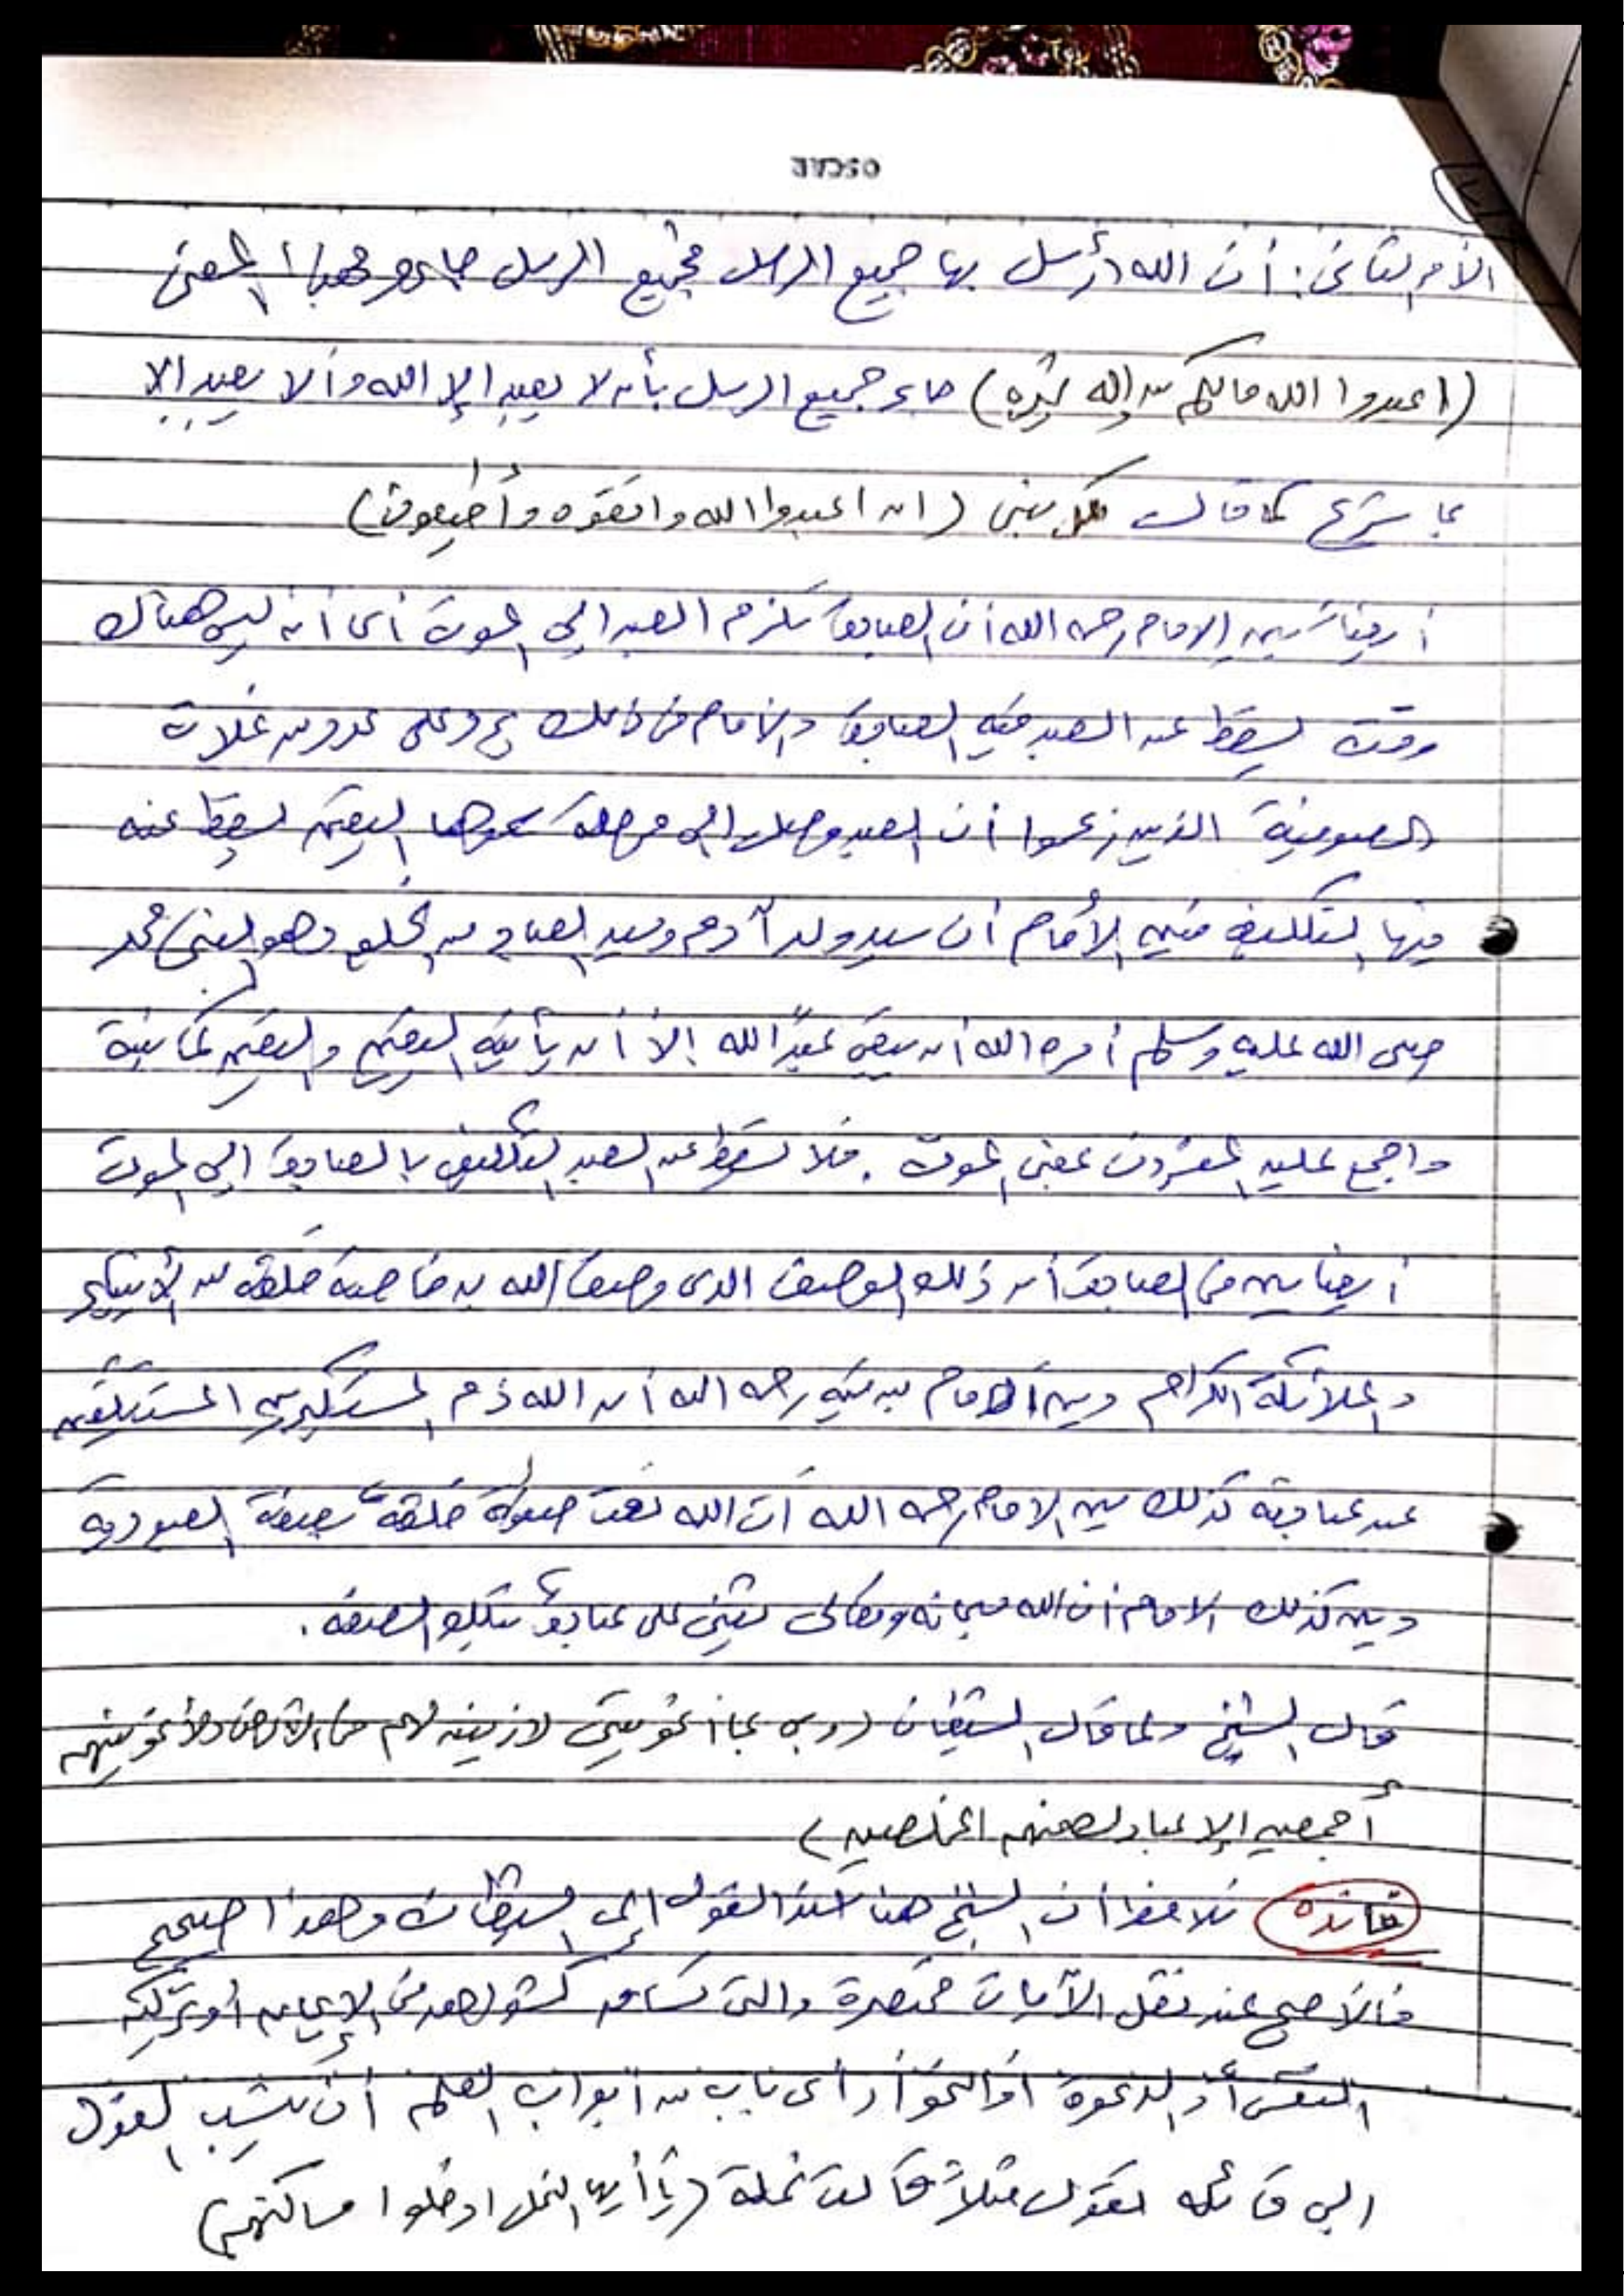 OSCAR
الأمر الثاني: أن الله أرسل بها جميع الرسل فجميع الرسل جاءو بهذا المعنى
(اعبدوا الله مالكم من إله غيره) جاء جميع الرسل بأن لا يعبد إلا الله وألا يعبد إلا
بما شرع كما قال كل نبي (ان اعبدوا الله واتقوه وأطيعون)
أيضا يبين الإمام رحمه الله أن العبادة تلزم العبد إلي الموت أى أنه ليس هناك
وقت يسقط عن العبد فيه العبادة والإمام في ذلك على من غلات
الصوفية الذين زعموا أن العبد وصل إلي مرحلة سموها اليقين يسقط عنه
فيها التكليف فبين الأمام أن سيد ولد آدم وسيد العباد من الخلق وهو النبي محمد
صلى الله عليه وسلم أمره الله أن يبقى عبدًا لله إلا أن يأتيه اليقين واليقين
واجمع عليه المفسرون بمعنى الموت. فلا يسقط عن العبد التكليف بالعبادة إلي الموت
أيضا بين في العبادة أن ذلك الوصف الذى وصف الله به خاصة خلقه من الأنبياء
والملائكة الكرام وبين الإمام بن تيمية رحمه الله أن الله ذم المستكبرين المستنكفين
عن عبادته كذلك بين الإمام رحمه الله أن الله نعت صفوة خلقه بصفة العبودية
وبين كذلك الإمام أن الله سبحانه وتعالى يثنى على عباده بتلك الصفة.
قال الشيخ ولما قال الشيطان (رب بما أغويتني لازينن لهم في الارض ولأغوينهم
أجمعين إلا عبادك منهم المخلصين)
فائده نلاحظ أن الشيخ هنا أسند القول إلى الشيطان وهذا صحيح
فالأصح عند نقل الآيات مختصرة والتى تساق كشواهد في الإيمان أو تزكية
النفس أو الدعوة أو النحو أو أى باب من أبواب العلم أن ينسب القول
إلي قائله نقول مثلاً قالت نملة (يا أيها النمل ادخلوا مساكنكم)